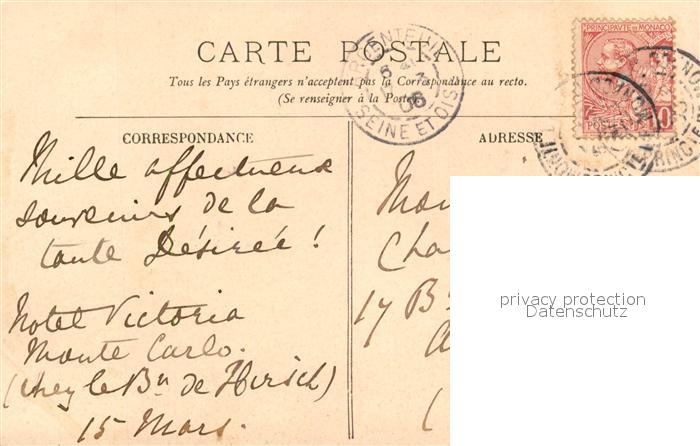 CARTE POSTALE
Tous les Pays étrangers n'acceptent pas la Correspondance au recto.
(Se renseigner à la Poste)
ARGENTEUIL
SEINE ET OISE
06
PRINCIPAUTE DE MONACO
POSTES
10
CORRESPONDANCE
Mille affectueux
souvenirs de la
tante Désirée!
Hotel Victoria
Monte Carlo.
(chez le Bn de Hirsch)
15 Mars.
ADRESSE
Mon
Cha
17 Bd
privacy protection
Datenschutz